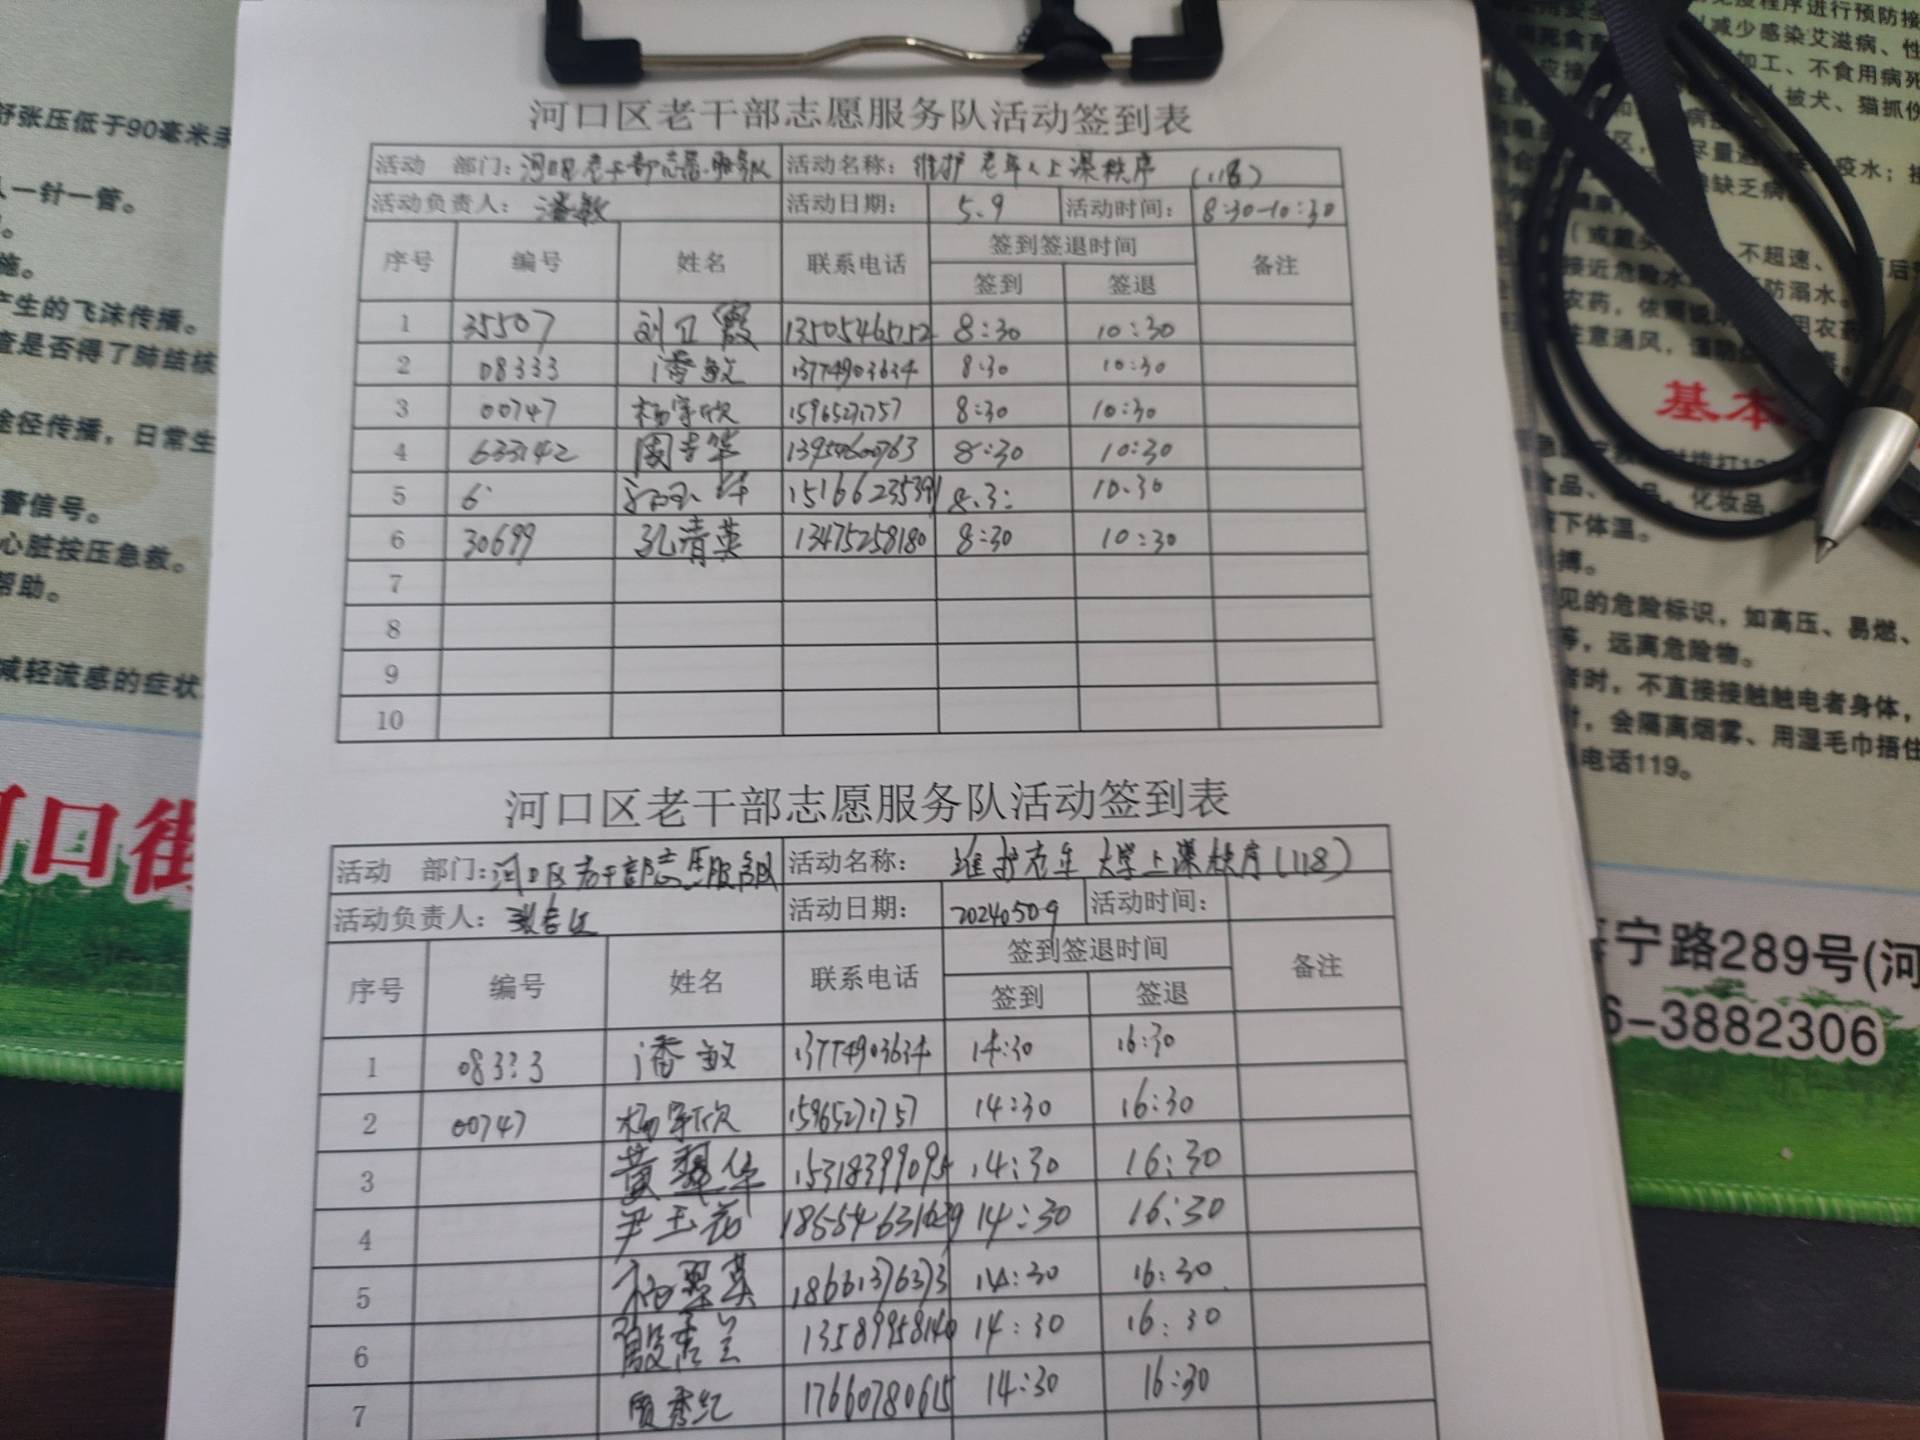 河口区老干部志愿服务队活动签到表
活动 部门: 河口区老干部志愿服务队 活动名称: 维护老年人上课秩序 (118)
活动负责人: 潘敏 活动日期: 5.9 活动时间: 8:30-10:30
序号 编号 姓名 联系电话 签到签退时间 备注
签到 签退
1 35507 刘卫霞 13505465152 8:30 10:30
2 08333 潘敏 13774903634 8:30 10:30
3 00747 杨宇欣 15965271757 8:30 10:30
4 633142 8:30 10:30
5 15166235391 10:30
6 30699 孔清英 13475258180 8:30 10:30
7
8
9
10
河口区老干部志愿服务队活动签到表
活动 部门: 河口区老干部志愿服务队 活动名称: 维护老年大学上课秩序(118)
活动负责人: 活动日期: 20240509 活动时间:
序号 编号 姓名 联系电话 签到签退时间 备注
签到 签退
1 08333 潘敏 13774903634 14:30 16:30
2 00747 杨宇欣 15965271757 14:30 16:30
3 黄翠华 15318399095 14:30 16:30
4 尹玉 18554631639 14:30 16:30
5 翠英 18661376373 14:30 16:30
6 殷秀兰 13589958140 14:30 16:30
7 贾秀红 17660780615 14:30 16:30
舒张压低于90毫米汞
人一针一管。
施。
产生的飞沫传播。
查是否得了肺结核
途径传播，日常生
警信号。
心脏按压急救。
帮助。
减轻流感的症状
河口街
疫程序进行预防接
减少感染艾滋病、性
加工、不食用病死
被犬、猫抓伤
疫水；接
缺乏病
不超速、
接近危险水
防溺水。
农药，依
注意通风，
基本
食品、
化妆品、
下体温。
搏。
见的危险标识，如高压、易燃、
等，远离危险物。
者时，不直接接触触电者身体，
时，会隔离烟雾、用湿毛巾捂住
电话119。
宁路289号(河
6-3882306